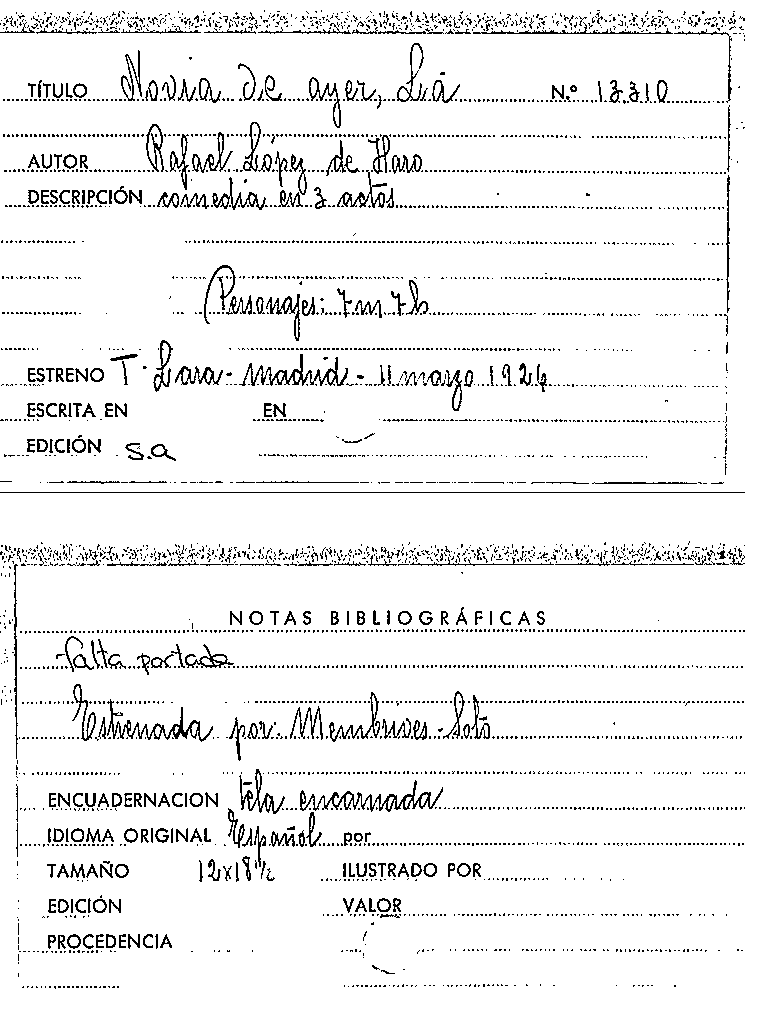 TÍTULO Novia de ayer, La N.º 13.310
AUTOR Rafael López de Haro
DESCRIPCIÓN comedia en 3 actos
Personajes: 7m 7h
ESTRENO T. Lara - Madrid - 11 marzo 1924
ESCRITA EN EN
EDICIÓN s.a
NOTAS BIBLIOGRÁFICAS
falta portada
Estrenada por: Membrives - Soto
ENCUADERNACION tela encarnada
IDIOMA ORIGINAL Español por
TAMAÑO 12x18½ ILUSTRADO POR
EDICIÓN VALOR
PROCEDENCIA